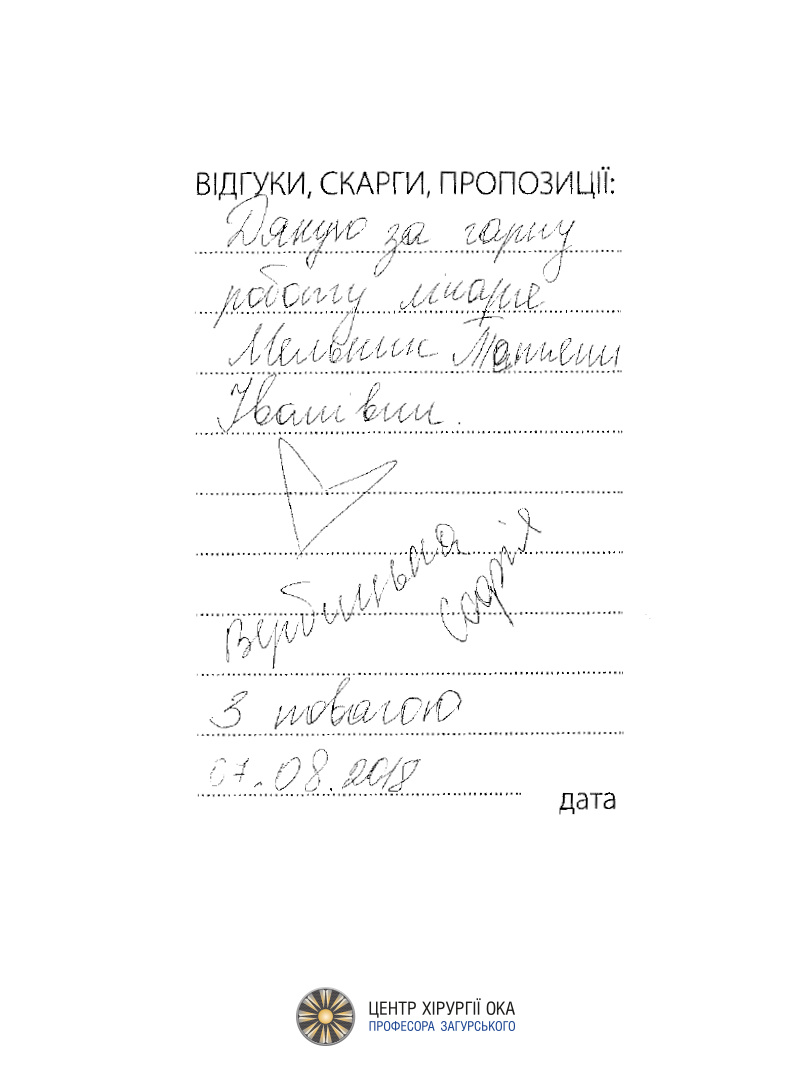 ВІДГУКИ, СКАРГИ, ПРОПОЗИЦІЇ:
Дякую за гарну
роботу лікаре
Мельник Татьяни
Іванівни.
Вербицька
Софія
З повагою
07.08.2018
дата
ЦЕНТР ХІРУРГІЇ ОКА
ПРОФЕСОРА ЗАГУРСЬКОГО